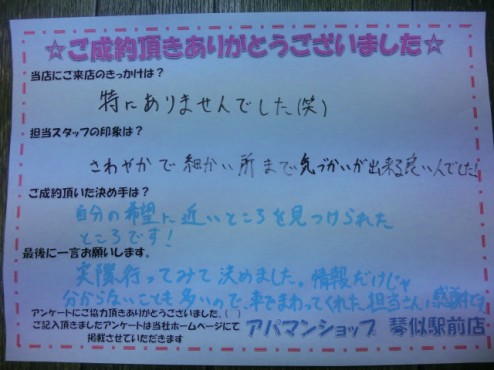 ☆ご成約頂きありがとうございました☆
当店にご来店のきっかけは?
特にありませんでした(笑)
担当スタッフの印象は?
さわやかで細かい所まで気づかいが出来る良い人でした!
ご成約頂いた決め手は?
自分の希望に近いところを見つけられた
ところです!
最後に一言お願いします。
実際行ってみて決めました。情報だけじゃ
分からないことも多いので、車でまわってくれた担当さんに感謝です
アンケートにご協力頂きありがとうございました。(_ _)
ご記入頂きましたアンケートは当社ホームページにて
掲載させていただきます
アパマンショップ 琴似駅前店